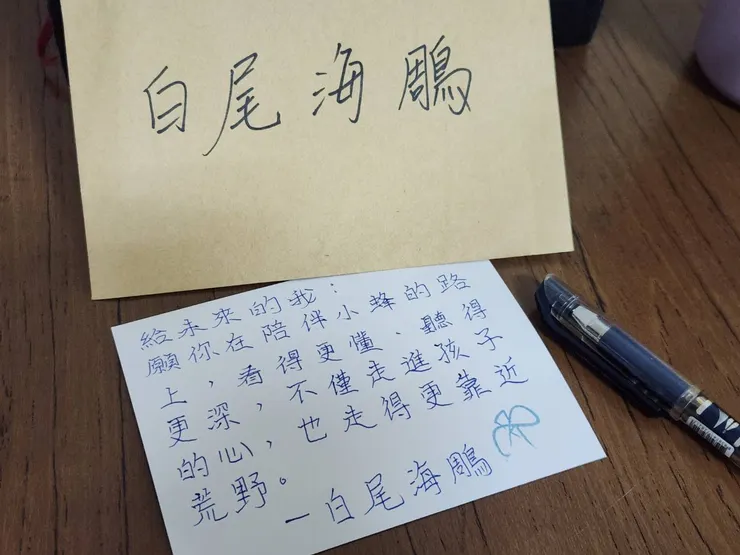 白尾海鵰
給未來的我：
願你在陪伴小蜂的路
上，看得更懂、聽得
更深，不僅走進孩子
的心，也走得更靠近
荒野。
－白尾海鵰